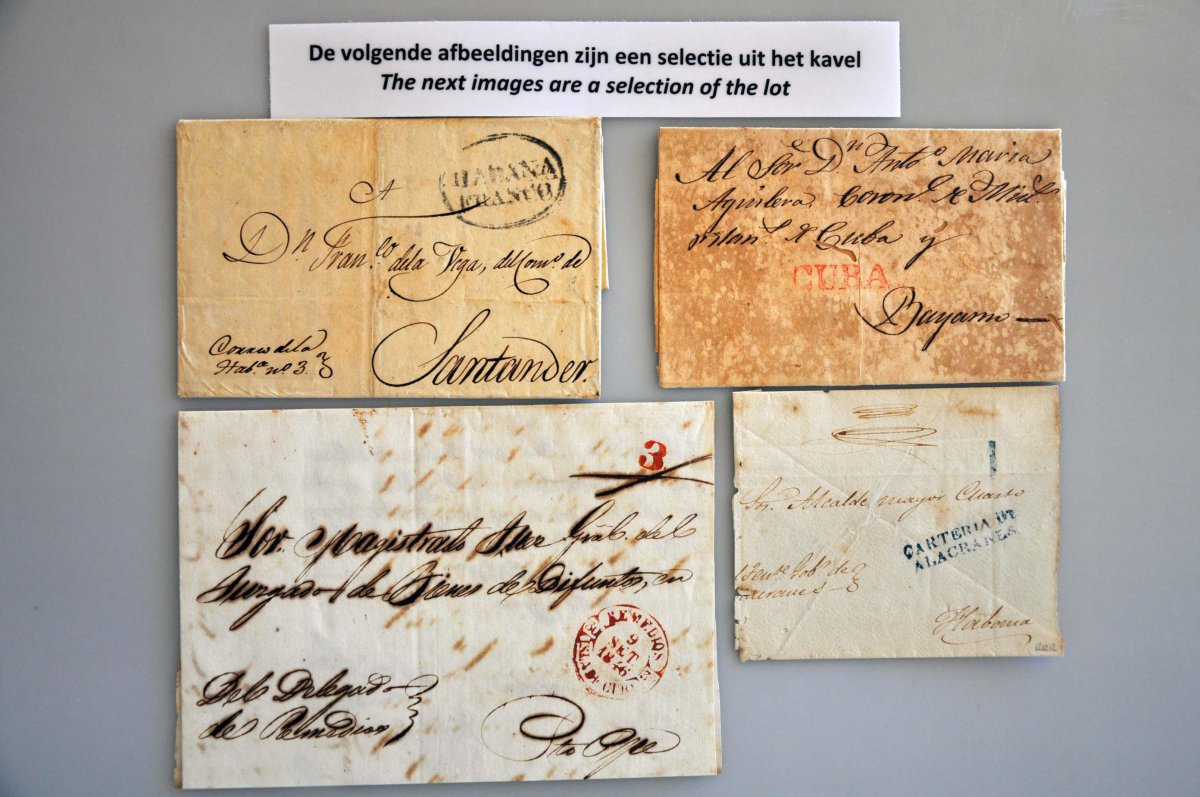 De volgende afbeeldingen zijn een selectie uit het kavel
The next images are a selection of the lot
HABANA
FRANCO
A
Dn. Fran.co de la Vega, del Com.o de
Santander.
Correo de la
Hab.a nº 3.
Al Sor. Dn. Anto. Maria
Aguilera, Coron.l de Mil.s
de Cuba y
CUBA
Bayamo
3
Sor. Magistrado Juez Gral. del
Juzgado de Bienes de Difuntos, en
REMEDIOS
9
SET
1846
Del Delegado
de Remedios
Pto Ppe
1
Sr. Alcalde mayor Cuarto
CARTERIA DE
ALACRANES
Tente. Gob.r de
Habana